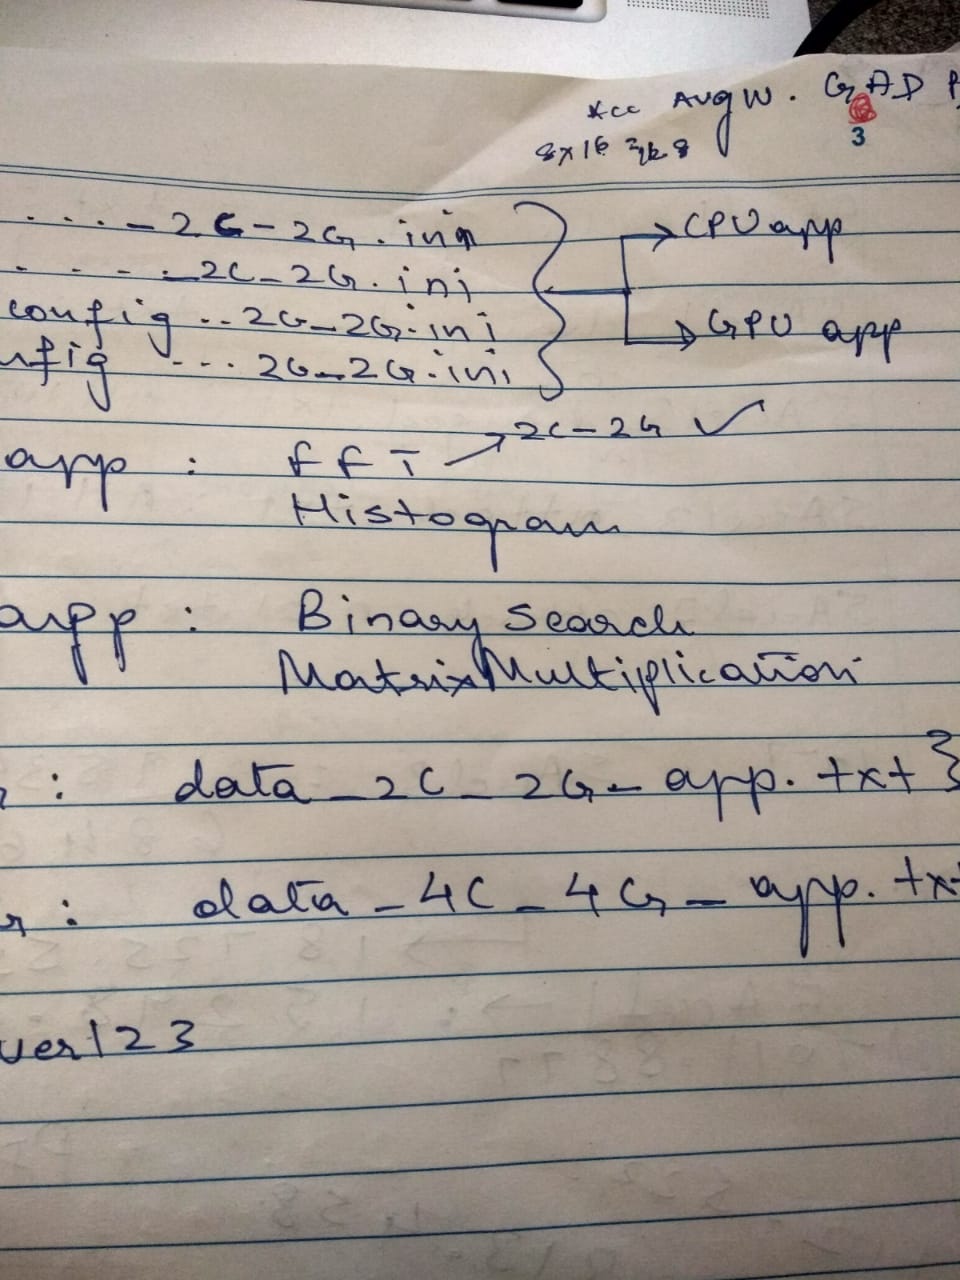 Acc AvgW. GAD
3
8x16
....-2C-2G.ini
....-2C-2G.ini
config..2G-2G.ini
nfig ...2G-2G.ini
CPU app
GPU app
2C-2G ✓
app : FFT →
Histogram
app : Binary Search
MatrixMultiplication
: data_2C_2G_app.txt }
r : data_4C_4G_app.tx
ver123